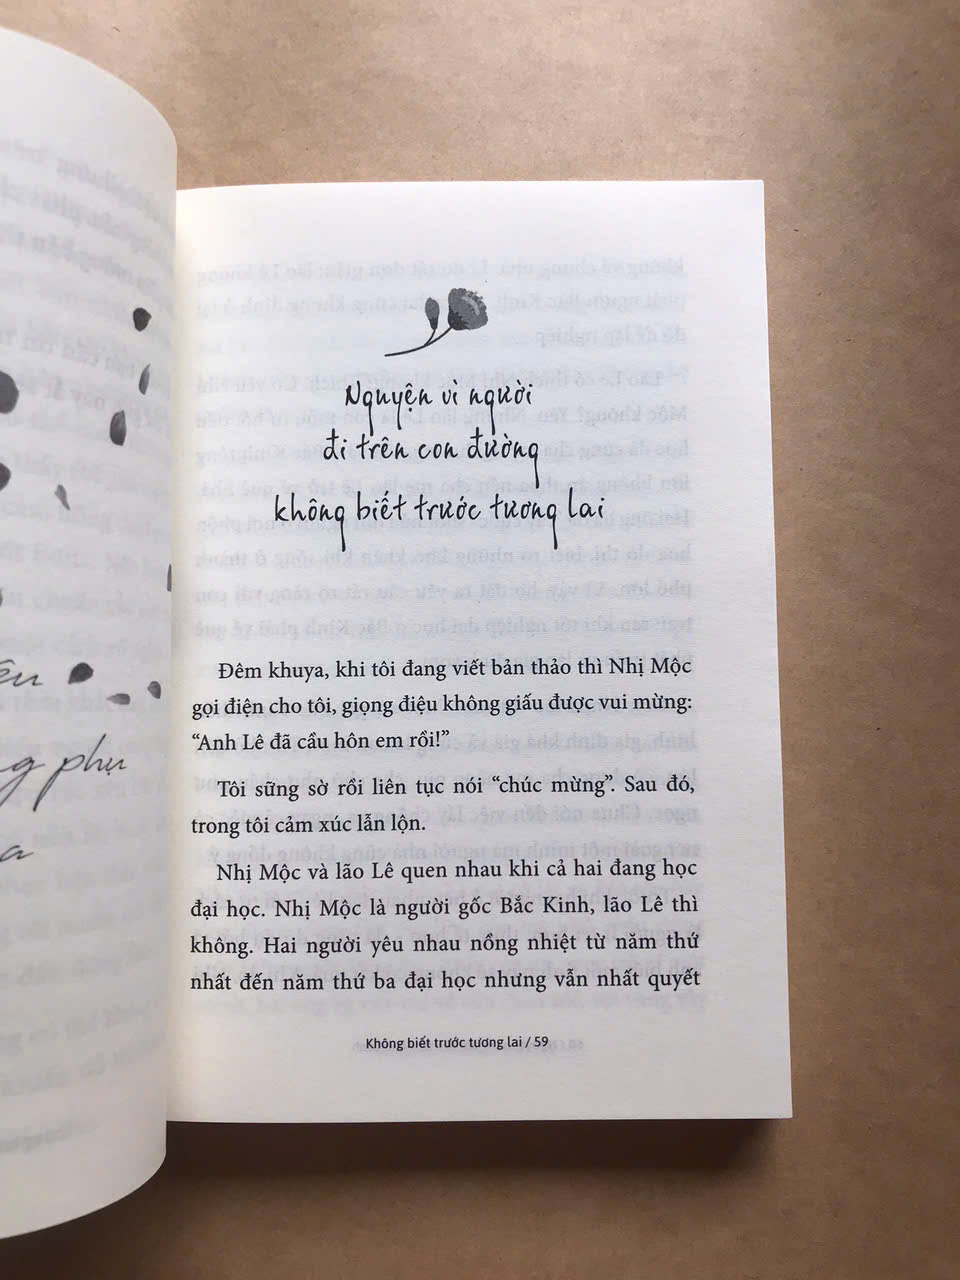 phụ
Nguyện vì người
đi trên con đường
không biết trước tương lai
Đêm khuya, khi tôi đang viết bản thảo thì Nhị Mộc
gọi điện cho tôi, giọng điệu không giấu được vui mừng:
“Anh Lê đã cầu hôn em rồi!”
Tôi sững sờ rồi liên tục nói “chúc mừng”. Sau đó,
trong tôi cảm xúc lẫn lộn.
Nhị Mộc và lão Lê quen nhau khi cả hai đang học
đại học. Nhị Mộc là người gốc Bắc Kinh, lão Lê thì
không. Hai người yêu nhau nồng nhiệt từ năm thứ
nhất đến năm thứ ba đại học nhưng vẫn nhất quyết
Không biết trước tương lai / 59